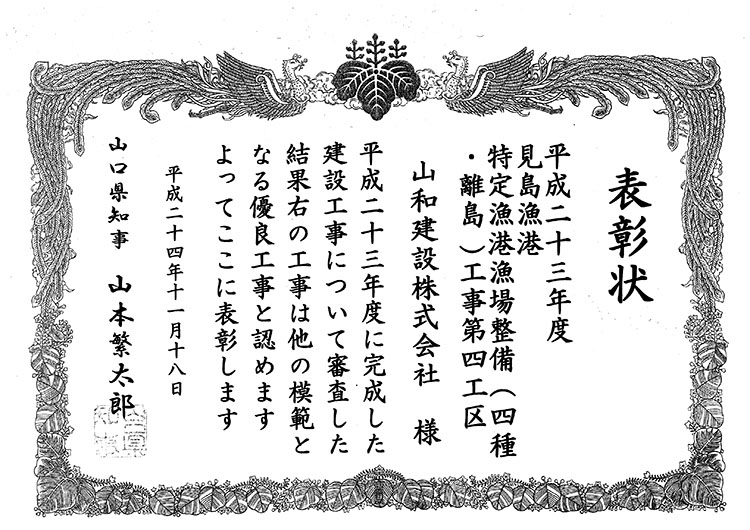 表彰状
平成二十三年度
見島漁港
特定漁港漁場整備(四種
・離島)工事第四工区
山和建設株式会社 様
平成二十三年度に完成した
建設工事について審査した
結果右の工事は他の模範と
なる優良工事と認めます
よってここに表彰します
平成二十四年十一月十八日
山口県知事 山本繁太郎